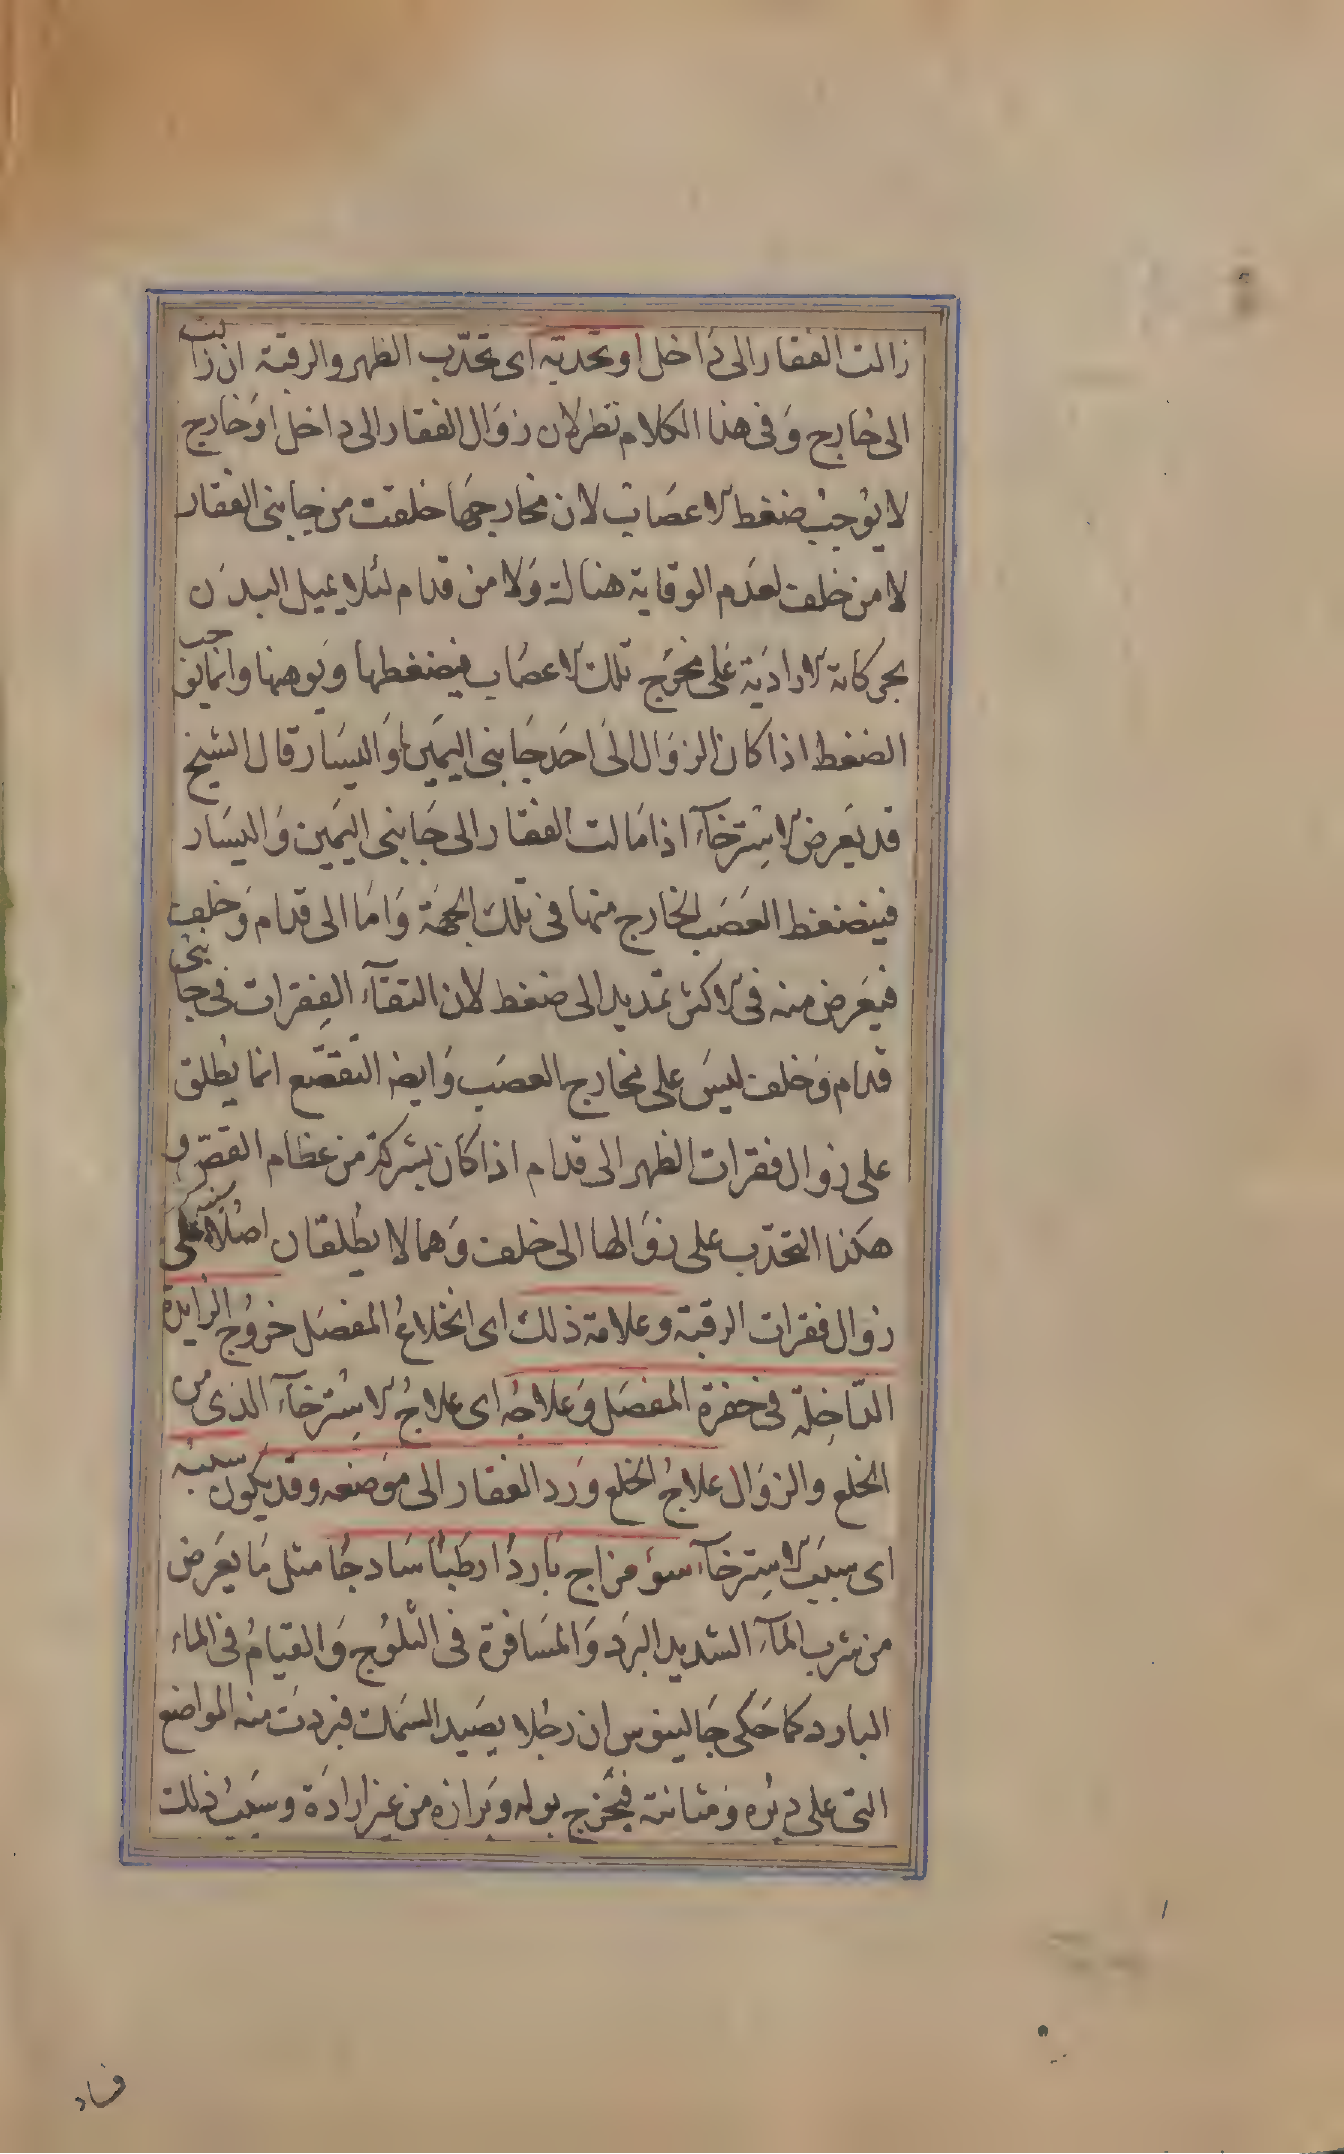 زالت الفقار الى داخل او تحدبه اى تحدب الظهر والرقبة ان زالت
الى خارج وفى هذا الكلام نظر لان زوال الفقار الى داخل او خارج
لا يوجب ضغط الاعصاب لان مخارجها خلقت من جانبى الفقار
لا من خلف لعدم الوقاية هناك ولا من قدام لئلا يميل البدن
بحركاته الارادية على مخرج تلك الاعصاب فيضغطها ويوهنها وانما يوجب
الضغط اذا كان الزوال الى احد جانبى اليمين او اليسار قال الشيخ
قد يعرض الاسترخاء اذا مالت الفقار الى جانبى اليمين واليسار
فينضغط العصب الخارج منها فى تلك الجهة واما الى قدام وخلف
فيعرض منه فى الاكثر تمديد الى ضغط لان التقاء الفقرات فى جانبى
قدام وخلف ليس على مخارج العصب وايضا التقصع انما يطلق
على زوال فقرات الظهر الى قدام اذا كان بشركة من عظام القص و
هكذا التحدب على زوالها الى خلف وهما لا يطلقان اصلا على
زوال فقرات الرقبة وعلامة ذلك اى انخلاع المفصل خروج الزايدة
الداخلة فى حفرة المفصل وعلاجه اى علاج الاسترخاء الذى من
الخلع والزوال علاج الخلع ورد الفقار الى موضعه وقد يكون سببه
اى سبب الاسترخاء سوء مزاج باردا رطبا ساذجا مثل ما يعرض
من شرب الماء الشديد البرد والمسافرة فى الثلوج والقيام فى الماء
البارد كما حكى جالينوس ان رجلا يصيد السمك فبردت منه المواضع
التى على دبره ومثانته فيخرج بوله وبرازه من غير ارادة وسبب ذلك
فساد